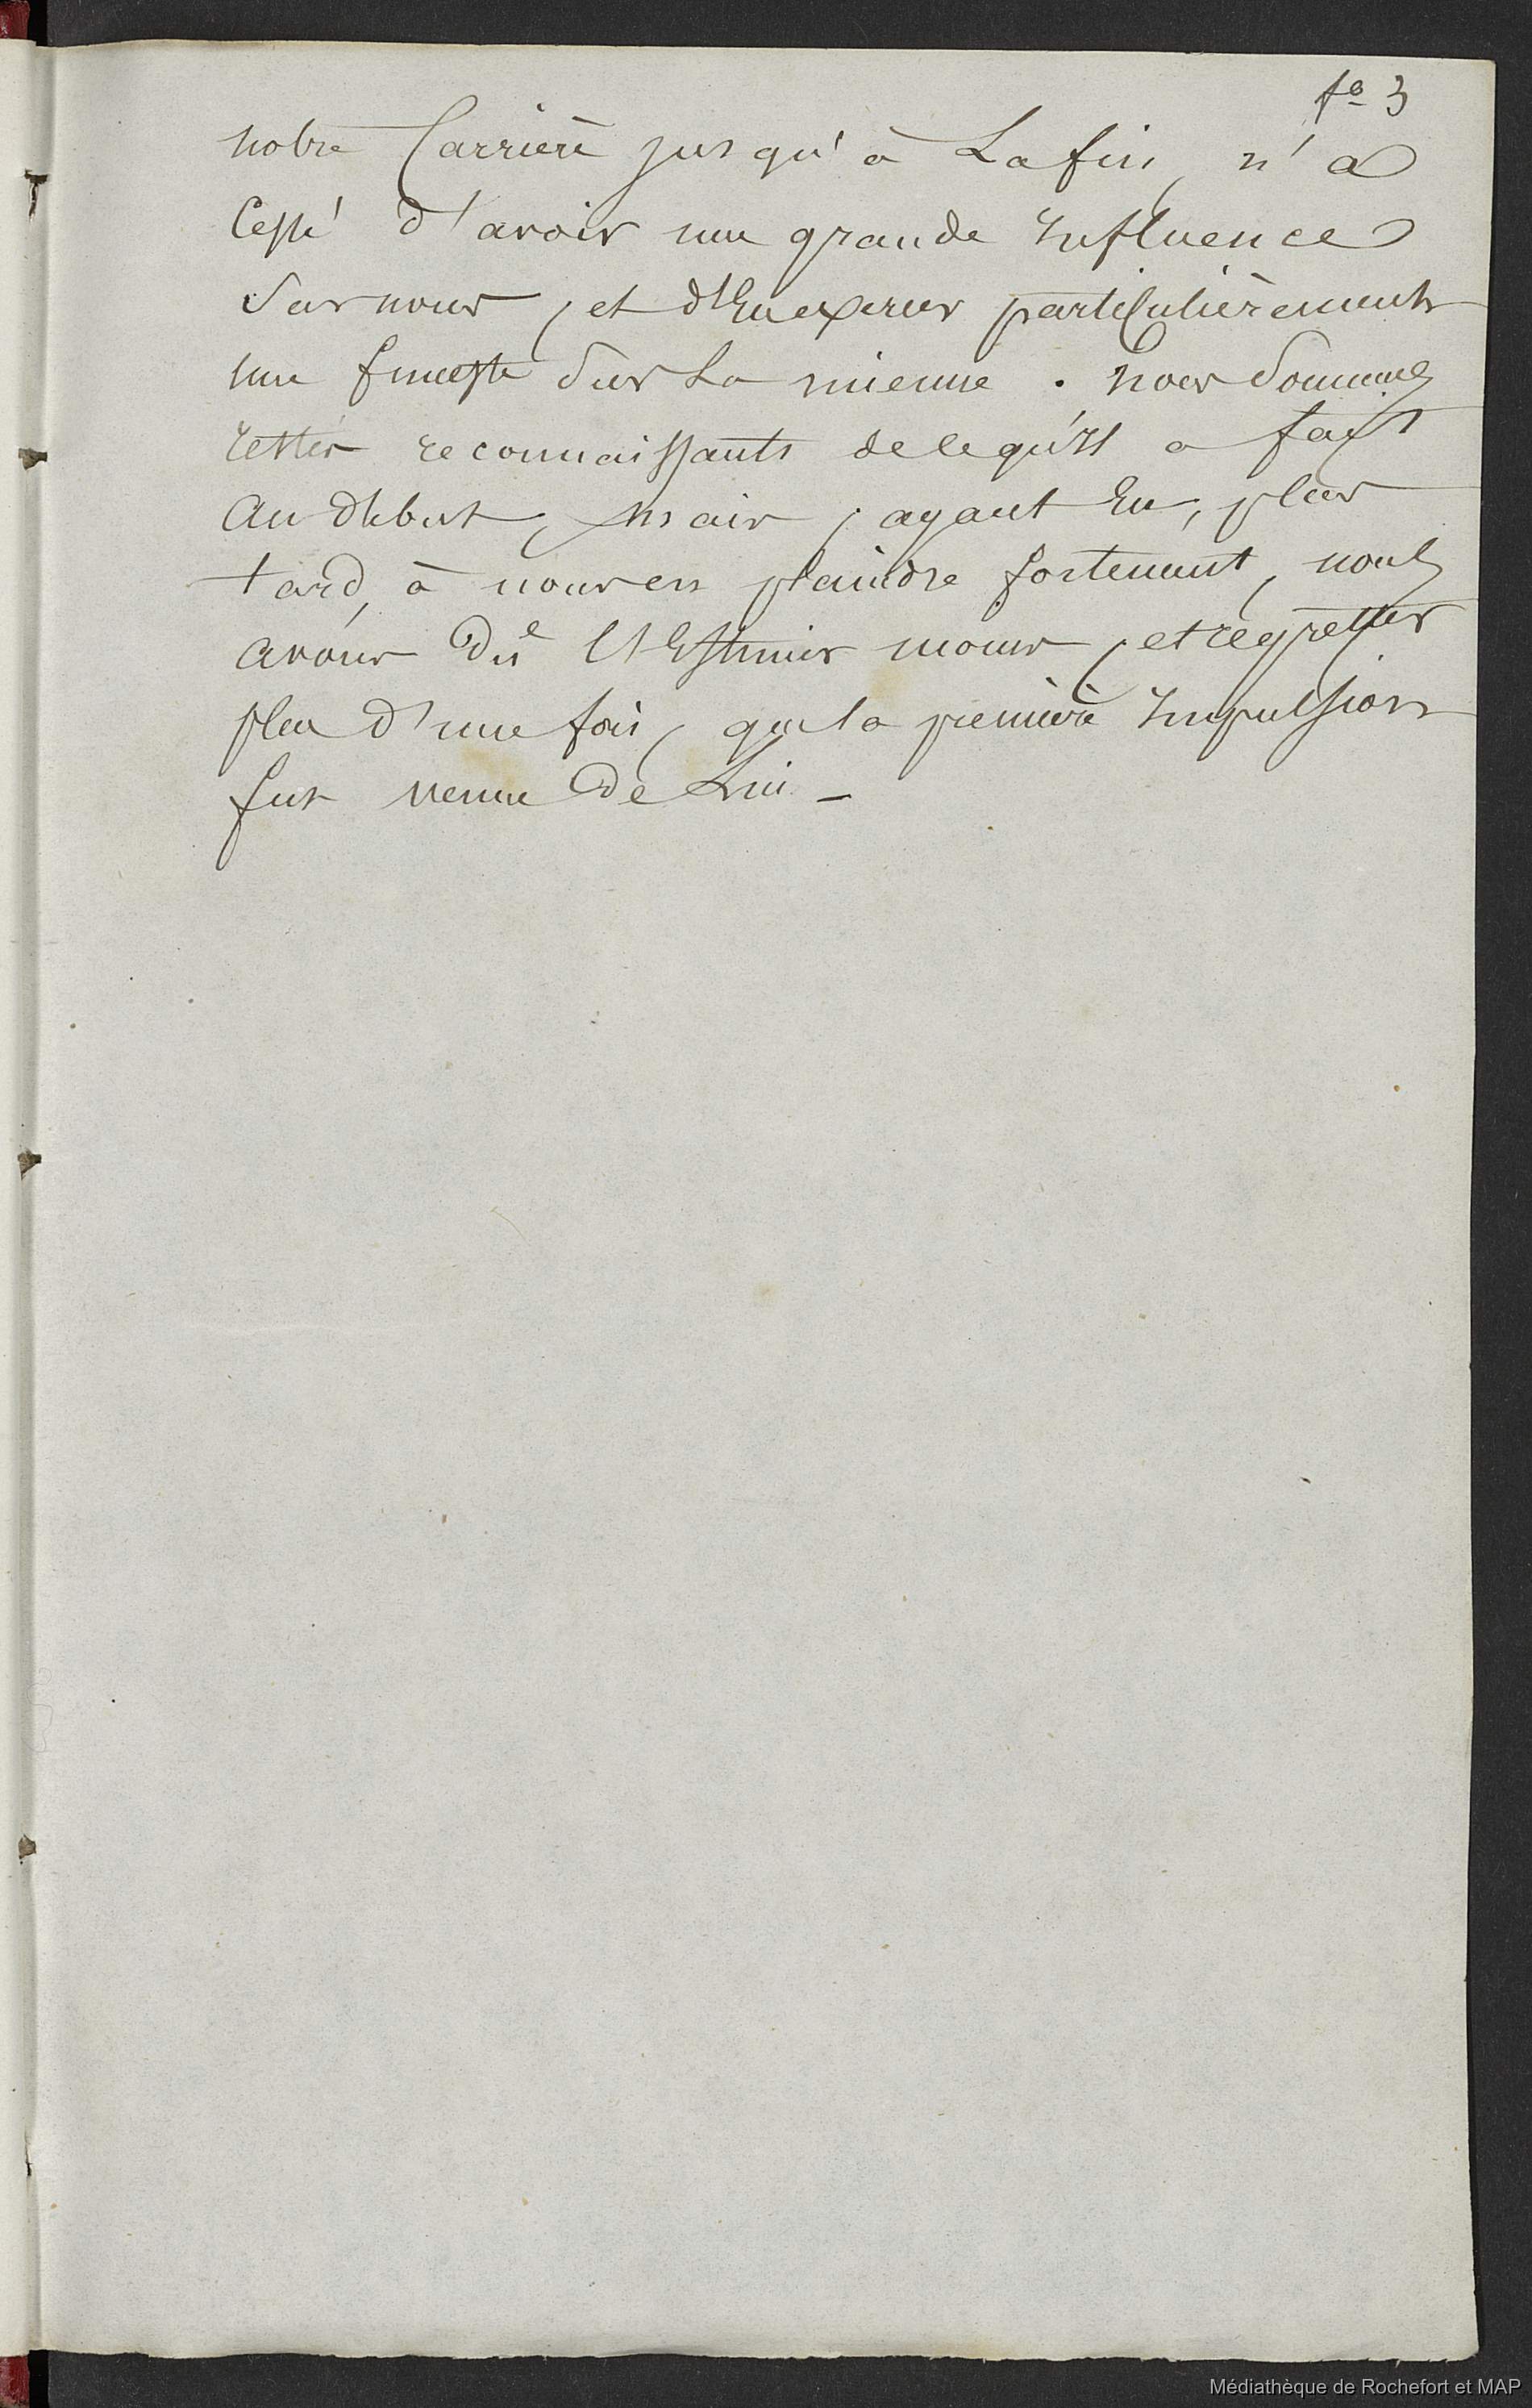 fo 3
notre Carrière jusqu'à La fin, n'a
Cessé d'avoir une grande Influence
Sur nous, et d'En exercer particulièrement
une funeste Sur La mienne. Nous Sommes
restés reconnaissants de ce qu'Il a fait
Au début, Mais, ayant Eu, plus
tard, à nous en plaindre fortement, nous
avons dû l'Estimer moins, et regretter
plus d'une fois, que la première Impulsion
fut venue de Lui -
Médiathèque de Rochefort et MAP